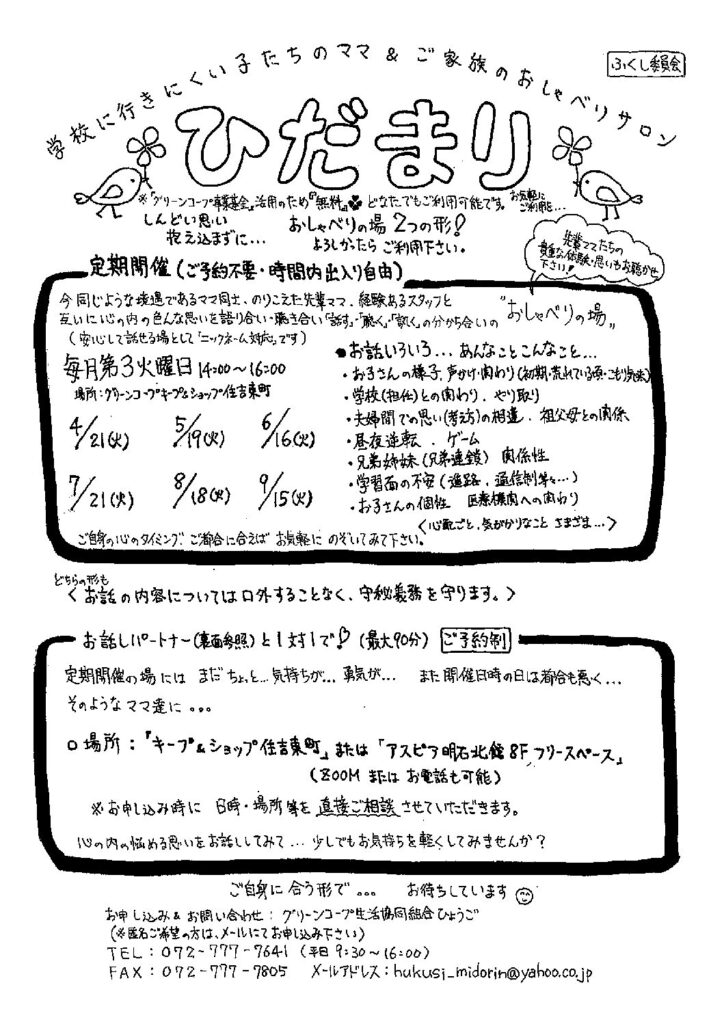 学校に行きにくい子たちのママ & ご家族のおしゃべりサロン
ふくし委員会
ひだまり
※「グリーンコープ事業基金」活用のため『無料』♣ どなたでもご利用可能です。 お気軽にご利用を…
しんどい思い
抱え込まずに…
おしゃべりの場 2つの形!
よろしかったら ご利用下さい。
先輩ママたちの
貴重な体験・思いもお聴かせ
下さい!
定期開催 (ご予約不要・時間内出入り自由)
今同じような境遇であるママ同士、のりこえた先輩ママ、経験あるスタッフと
互いに心の内の色んな思いを語り合い・聴き合い「話す」・「聴く」・「頷く」の分かち合いの "おしゃべりの場"
(安心して話せる場として「ニックネーム対応」です)
毎月第3火曜日 14:00〜16:00
場所:グリーンコープキープ&ショップ住吉東町
4/21(火) 5/19(火) 6/16(火)
7/21(火) 8/18(火) 9/15(火)
●お話いろいろ… あんなことこんなこと…
・お子さんの様子、声かけ・関わり(初期・荒れている頃・こもり気味)
・学校(担任)との関わり、やり取り
・夫婦間での思い(考え方)の相違、祖父母との関係
・昼夜逆転、ゲーム
・兄弟姉妹(兄弟連鎖) 関係性
・学習面の不安(進路、通信制等々…)
・お子さんの個性 医療機関への関わり
〈心配ごと、気がかりなこと さまざま…〉
ご自身の心のタイミング、ご都合に合えば お気軽に のぞいてみて下さい。
どちらの形も
〈お話の内容については口外することなく、守秘義務を守ります。〉
お話しパートナー(裏面参照)と1対1で! (最大90分) ご予約制
定期開催の場には まだ ちょっと… 気持ちが… 勇気が… また開催日時の日は都合も悪く…
そのような ママ達に 。。。
○場所:『キープ&ショップ住吉東町』または「アスピア明石北館8Fフリースペース」
(ZOOM または お電話も可能)
※お申し込み時に 日時・場所等を直接ご相談させていただきます。
心の内の悩める思いをお話ししてみて… 少しでもお気持ちを軽くしてみませんか?
ご自身に合う形で 。。。 お待ちしています
お申し込み&お問い合わせ: グリーンコープ生活協同組合ひょうご
(※匿名ご希望の方は、メールにてお申込み下さい)
TEL:072-777-7641 (平日 9:30〜16:00)
FAX:072-777-7805 メールアドレス:hukusi_midorin@yahoo.co.jp